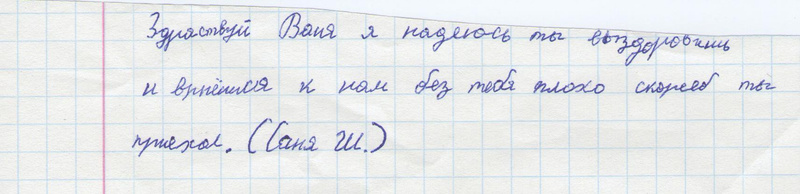 Здраствуй Ваня я надеюсь ты выздоровишь
и вернёшся к нам без тебя плохо скорееб ты
приехал. (Саня Ш.)